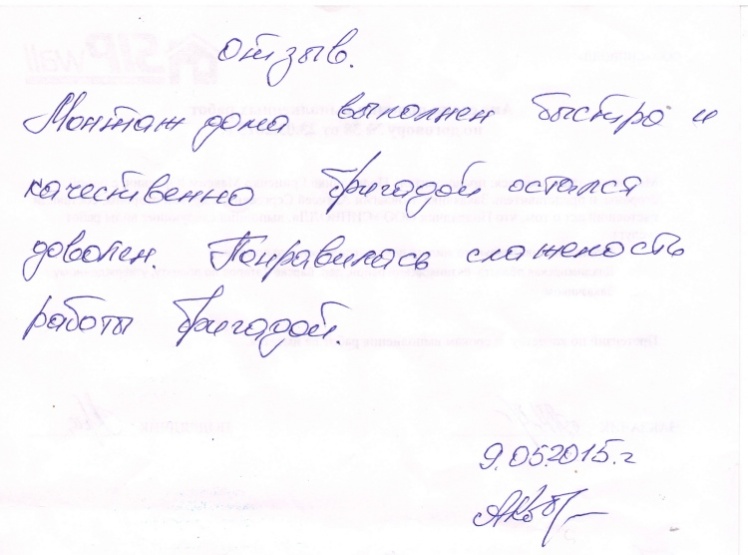 отзыв.
Монтаж дома выполнен быстро и
качественно бригадой остался
доволен. Понравилась слаженость
работы бригадой.
9.05.2015.г